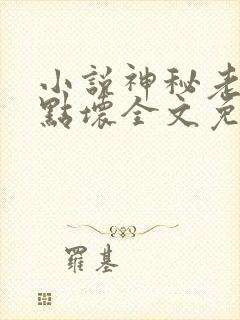 小説神秘老
點壞全文免
羅基